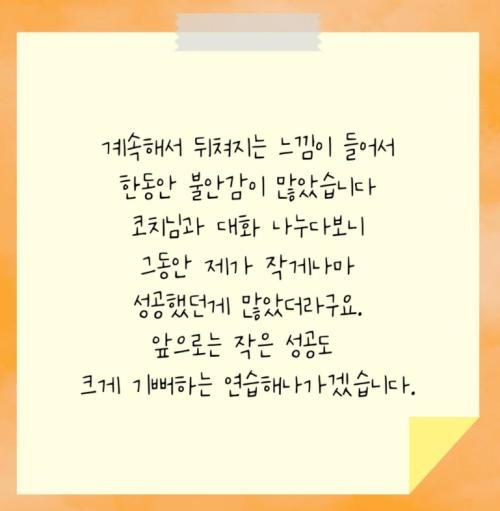 계속해서 뒤쳐지는 느낌이 들어서
한동안 불안감이 많았습니다
코치님과 대화 나누다보니
그동안 제가 작게나마
성공했던게 많았더라구요.
앞으로는 작은 성공도
크게 기뻐하는 연습해나가겠습니다.